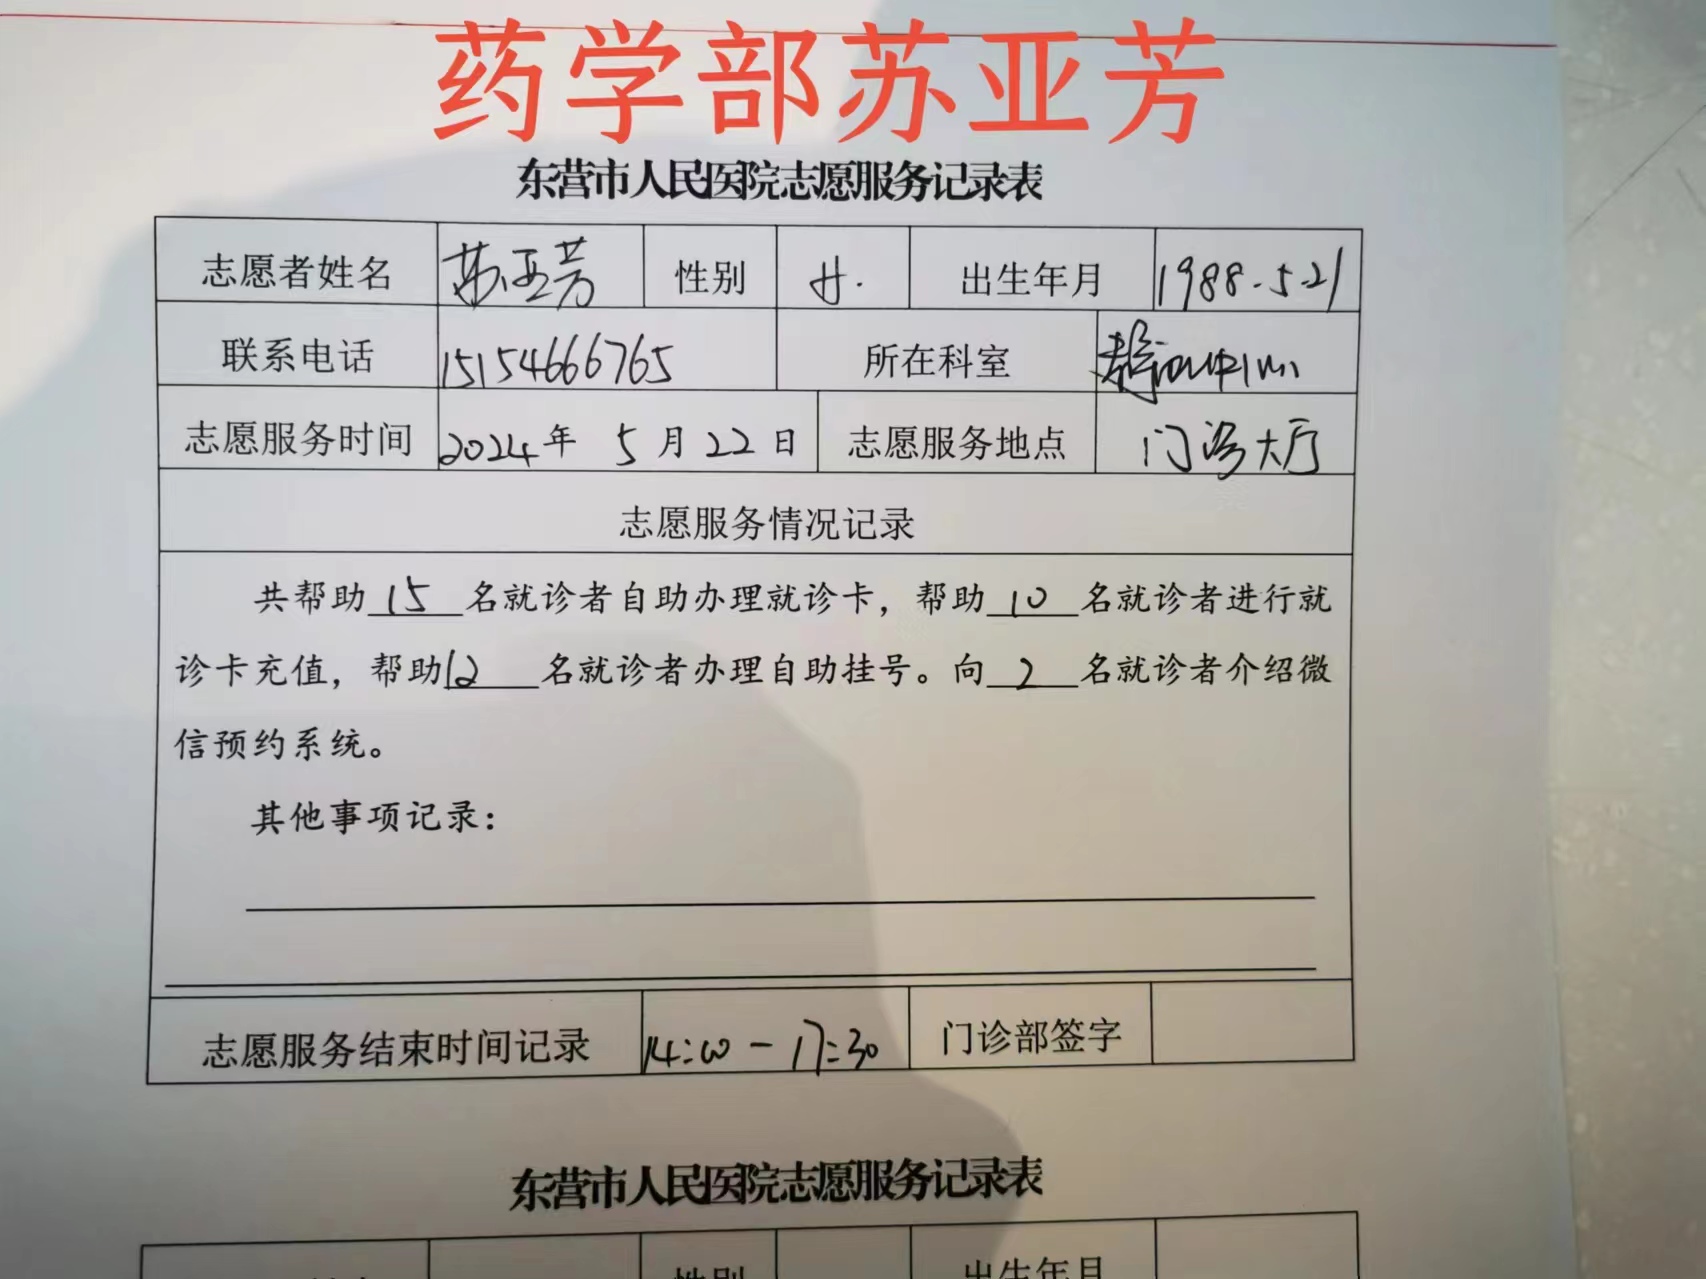 药学部苏亚芳
东营市人民医院志愿服务记录表
志愿者姓名 苏亚芳 性别 女. 出生年月 1988.5.21
联系电话 15154666765 所在科室
志愿服务时间 2024年 5月22日 志愿服务地点 门诊大厅
志愿服务情况记录
共帮助 15 名就诊者自助办理就诊卡，帮助 10 名就诊者进行就
诊卡充值，帮助 12 名就诊者办理自助挂号。向 2 名就诊者介绍微
信预约系统。
其他事项记录：
志愿服务结束时间记录 14:00-17:30 门诊部签字
东营市人民医院志愿服务记录表
性别 出生年月